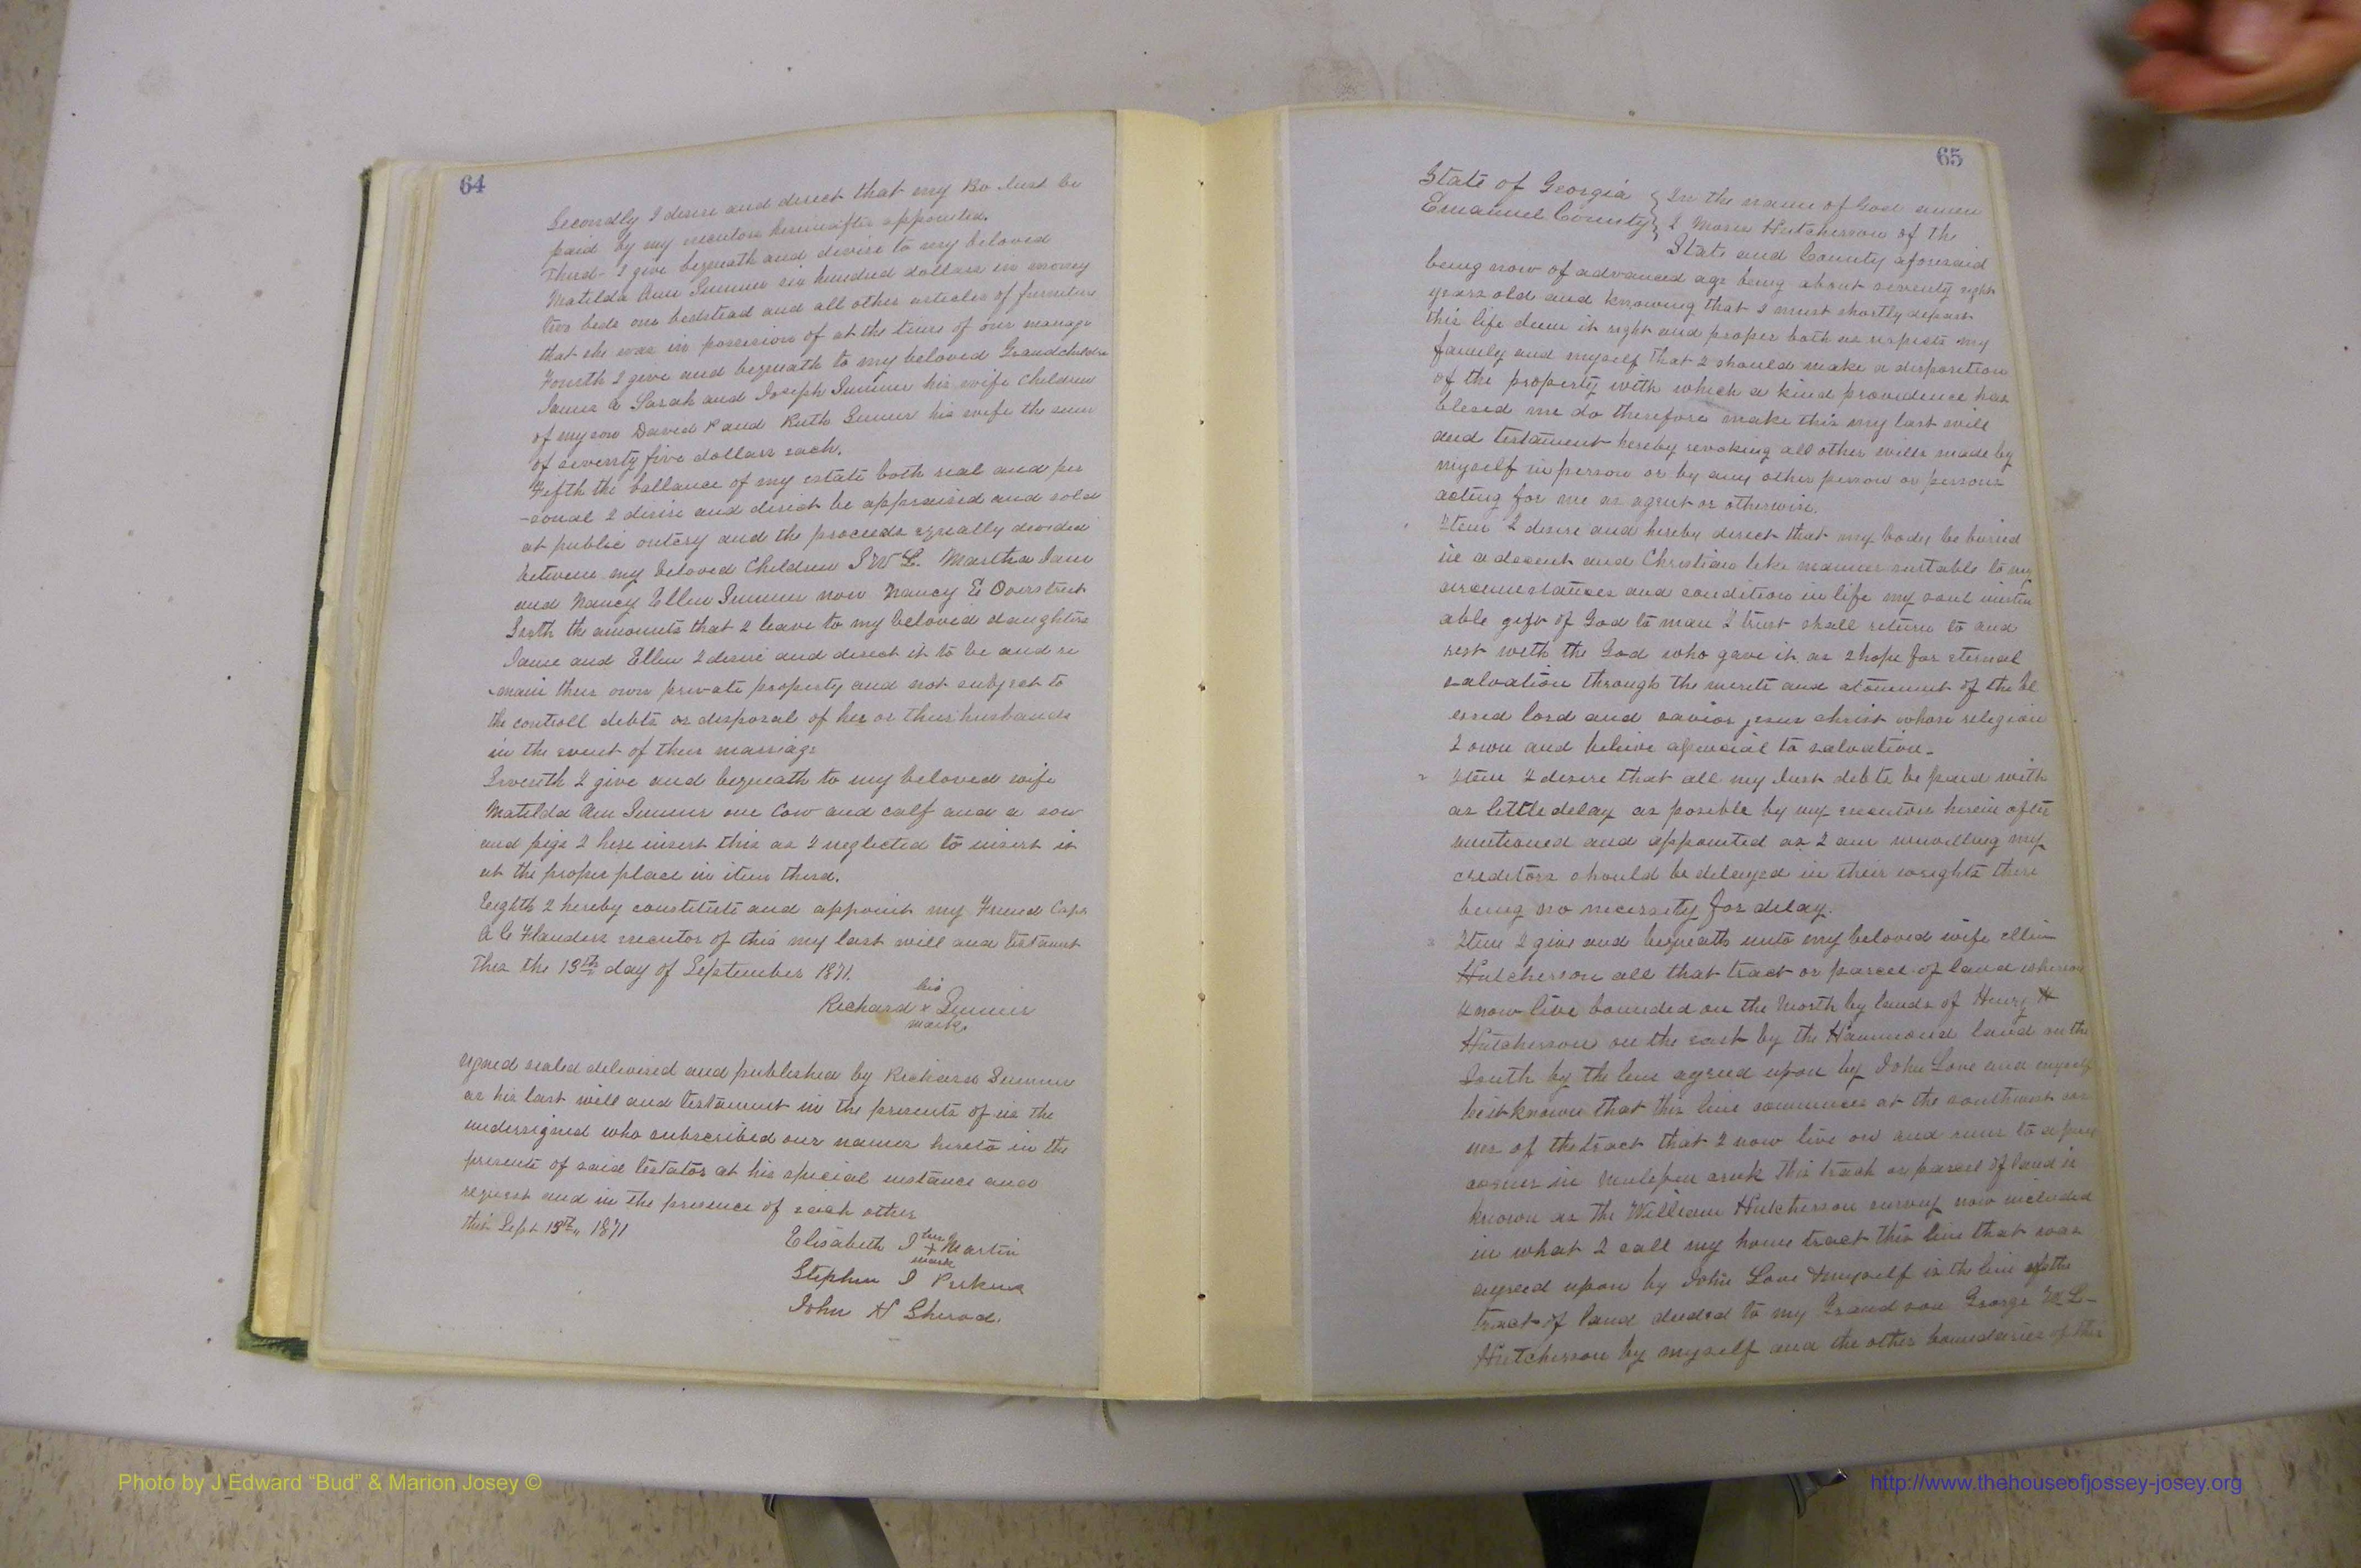 64
Secondly I desire and direct that my Bo Just be
paid by my executors hereinafter appointed.
Third- I give bequeath and devise to my beloved
Matilda Ann Sumner six hundred dollars in money
two beds one bedstead and all other articles of furniture
that she was in possesion of at the time of our marage
Fourth I geve and bequeath to my beloved Grandchildre
James A Sarah and Joseph Sumner his wife Children
of my son David P and Ruth Sumner his wife the sum
of seventy five dollars each.
Fefth the ballance of my estate both real and per
-sonal I desire and direct be appraised and sold
at public outcry and the proceeds equally devided
between my beloved Children J W L. Martha Jane
and Nancy Ellen Sumner now Nancy E Overstreet
Sixth the amounts that I leave to my beloved daughters
Jane and Ellen I desire and direct it to be and re
-main their own private property and not subject to
the controll debts or disposal of her or their husbands
in the event of their marriage
Seventh I give and bequeath to my beloved wife
Matilda Ann Sumner one Cow and calf and a sow
and pigs I here insert this as I neglected to insert it
at the proper place in item third.
Eighth I hereby constitute and appoint my Friend Capt
A C Flanders executor of this my last will and testament
This the 13th day of September 1871.
his
Richard x Sumner
mark.
signed sealed delivered and published by Richard Sumner
as his last will and testament in the presents of us the
undersigned who subscribed our names hereto in the
presents of said testator at his special instance and
request and in the presence of each other
this Sept 13th, 1871
Elisabeth J her + Martin
mark
Stephen J Perkins
John N Sherod.
65
State of Georgia } In the name of God amen
Emanuel County } I Moses Hutcherson of the
State and County aforesaid
being now of advanced age being about seventy eight
years old and knowing that I must shortly depart
this life deem it right and proper both as respects my
family and myself that I should make a disposition
of the property with which a kind providence has
blesed me do therefore make this my last will
and testament hereby revoking all other wills made by
myself in person or by any other person or persons
acting for me as agent or otherwise.
1 Item I desire and hereby direct that my body be buried
in a decent and Christian like manner suitable to my
circumstances and condition in life my soul
able gift of God to man I trust shall return to and
rest with the God who gave it as I hope for eternal
salvation through the merits and atonement of the bl
essed lord and savior jesus christ whose religion
I own and believe to salvation-
2 Item I desire that all my Just debts be paid with
as little delay as posible by my executors herein after
mentioned and appointed as I am unwilling my
creditors should be delayed in their wrights there
being no necessity for delay.
3 Item I give and bequeath unto my beloved wife ellin
Hutcherson all that tract or parcel of land whereon
I now live bounded on the North by lands of Henry H
Hutcherson on the east by the Hammond land on the
South by the line agreed upon by John Love and myself
be it known that this line commences at the southwest cor
ner of the tract that I now live on and runs to a pine
corner in creek this track or parcel of land is
known as the William Hutcherson survey now included
in what I call my home tract this line that was
agreed upon by John Love & myself is the line of the
tract of land deeded to my Grand son George W L-
Hutcherson by myself and the other boundaries of this
Photo by J Edward “Bud” & Marion Josey ©
http://www.thehouseofjossey-josey.org